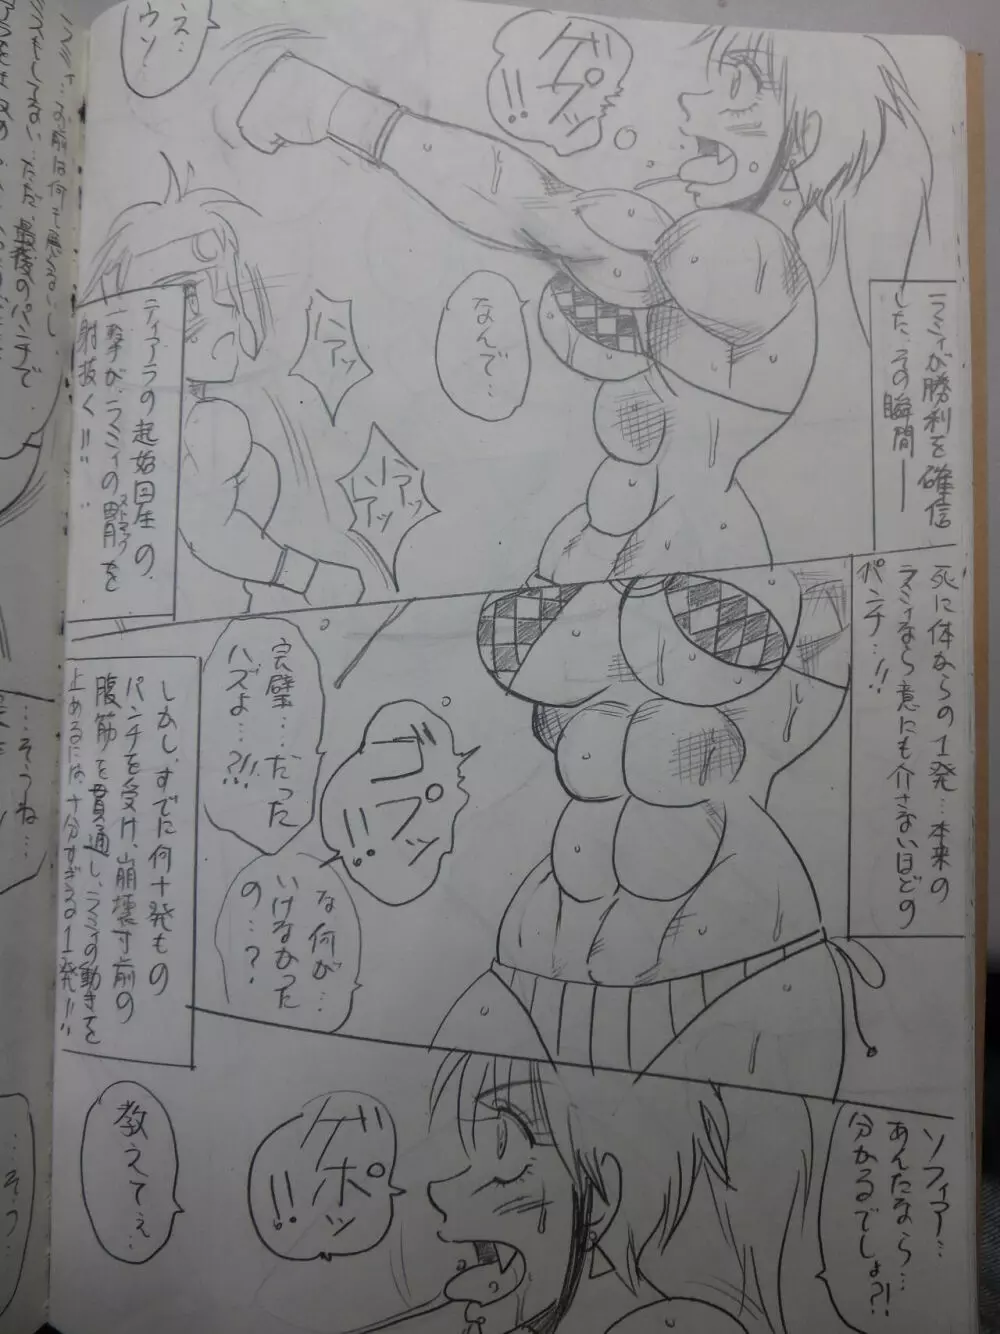 ラミィが勝利を確信
した、その瞬間――
ゲプッ!!
え…
ウソ…
なんで…
ハアッ
ハアッ
アッ
ティアラの起始回生の、
一撃が、ラミィの胃を
ストマック
射抜く!!
死に体からの1発…本来の
ラミィなら意にも介さないほどの
パンチ…!!
ゴプッ!!
完璧…だった
ハズよ…?!!
な、何が…
いけなかった
の…?
しかし、すでに何十発もの
パンチを受け、崩壊寸前の
腹筋を貫通し、ラミィの動きを
止めるには、十分すぎる1発!!
ソフィア…
あんたなら…
分かるでしょ?!
ゲポッ!!
教えてぇ…
…お前は何も悪くないし
ミスもしてない…ただ、最後のパンチで
…そうね…
…そう…